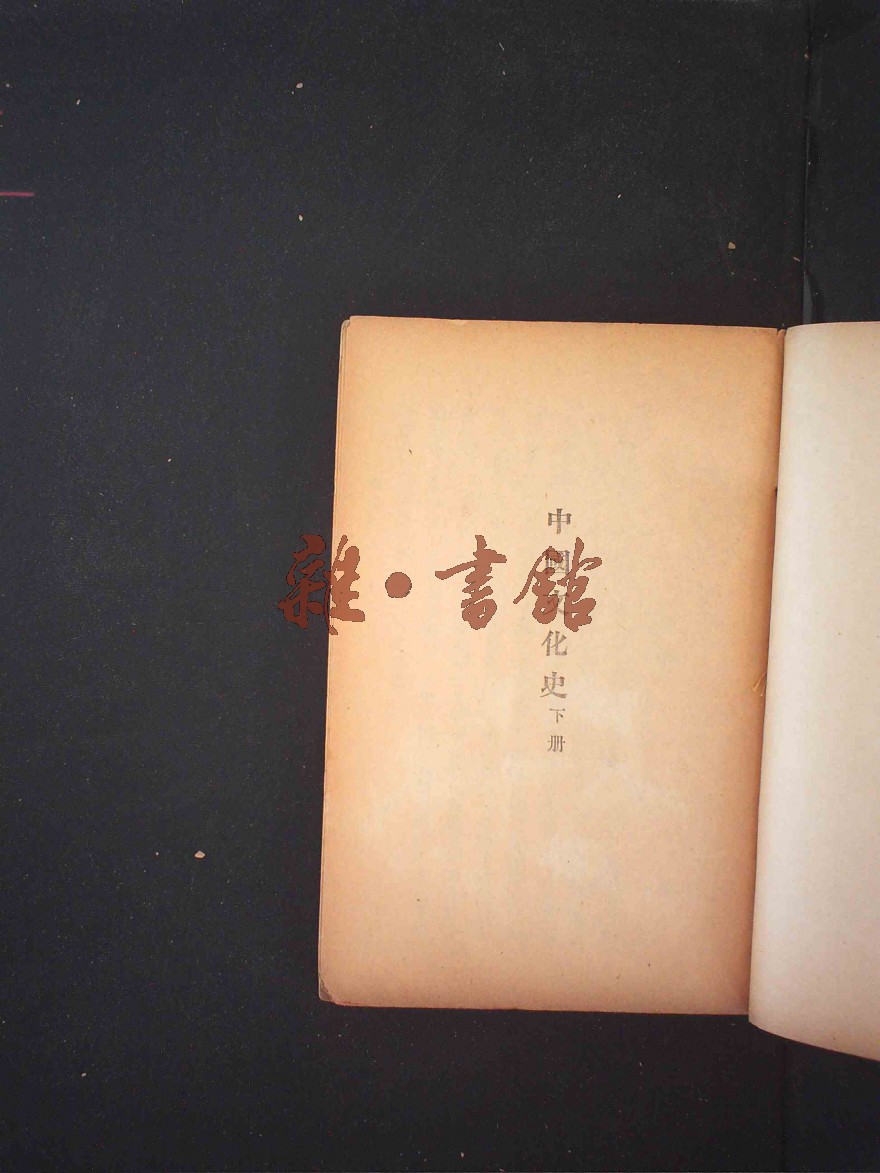 中國文化史下册
雜·書館